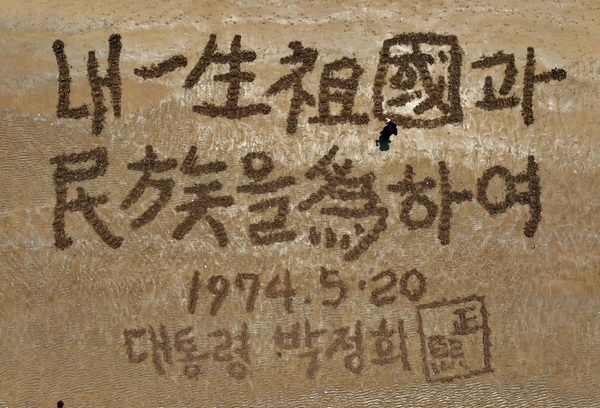 내 一生 祖國과
民族을 爲하여
1974.5.20
대통령 박정희